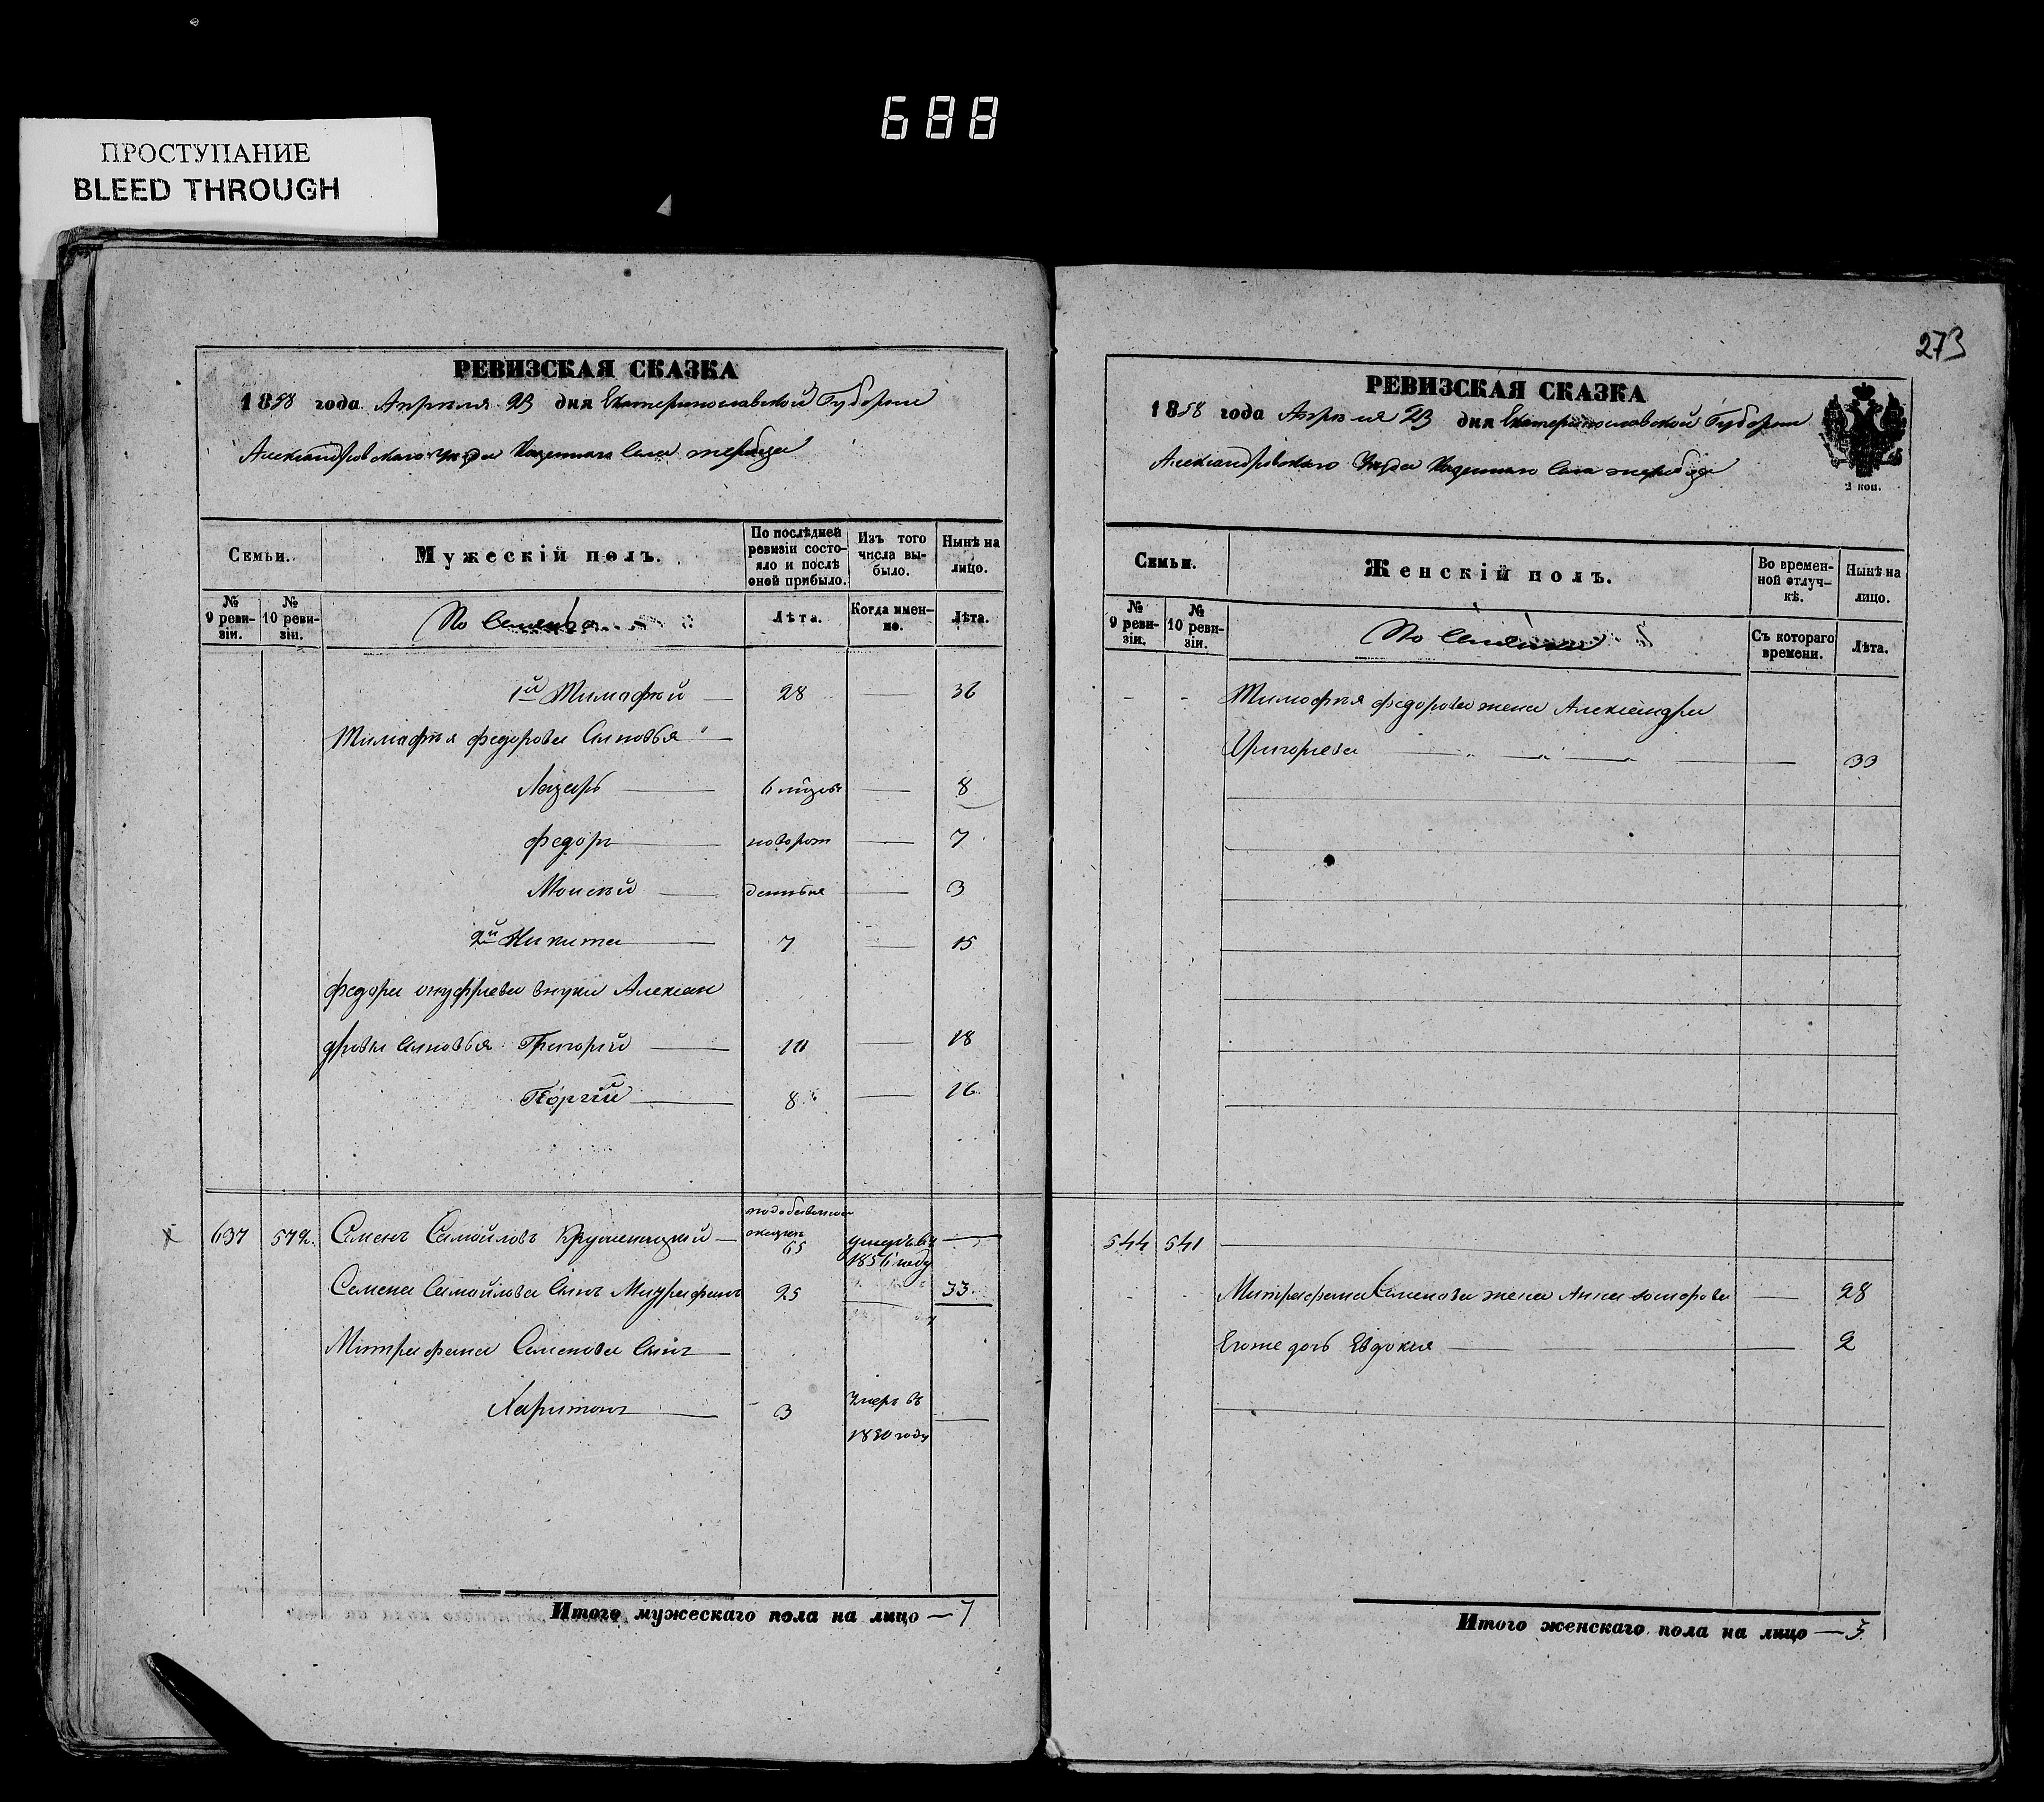 688
ПРОСТУПАНИЕ
BLEED THROUGH
РЕВИЗСКАЯ СКАЗКА
1858 года Апреля 23 дня Екатеринославской Губернии
Александровского уезда Казенного Села Жеребца
Семьи.
Мужескій полъ.
По послѣдней ревизіи состояло и послѣ оной прибыло.
Изъ того числа выбыло.
Нынѣ на лицо.
№ 9 ревизіи.
№ 10 ревизіи.
Лѣта.
Когда именно.
Лѣта.
1й Тимофей — 28 — 36
Тимофея Федорова Сыновья
Лазарь — 8
Федоръ — новорож — 7
Моисей — 3
2й Никита — 7 — 15
Федора Онуфриева внуки Алексан
дровы Сыновья Григорий — 10 — 18
Георгий — 8 — 16
637 572 Семенъ Самойловъ — 65 умеръ въ 1856 году —
Семена Самойлова Сынъ Митрофанъ 25 — 33
Митрофана Семенова Сынъ
Харитонъ — 3 Умеръ въ —
1850 году
Итого мужескаго пола на лицо — 7
273
РЕВИЗСКАЯ СКАЗКА
1858 года Апреля 23 дня Екатеринославской Губернии
Александровского Уезда Казенного Села Жеребца
2 коп.
Семьи.
Женскій полъ.
Во временной отлучкѣ.
Нынѣ на лицо.
№ 9 ревизіи.
№ 10 ревизіи.
Съ котораго времени.
Лѣта.
- - Тимофея Федорова жена Александра
Григорьева — 33
544 541
- - Митрофана Семенова жена Анна — 28
Его же дочь Евдокия — 2
Итого женскаго пола на лицо — 3